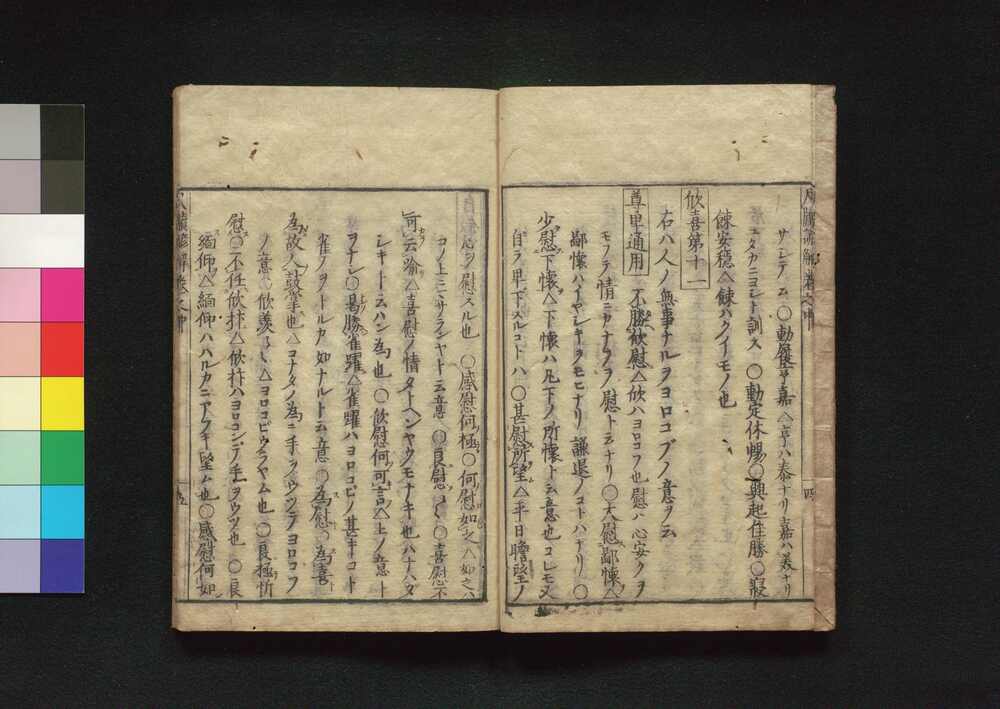 尺牘諺解 卷之中
四
サレシテノム ○動履亨嘉 △亨ハ泰ナリ嘉ハ美ナリ
ユタカニヨシト訓ス ○動定休暢○興起佳勝○寢
餗安穩△餗ハクイモノ也
欣喜第十一
右ハ人ノ無事ナルヲヨロコブノ意ヲ云
尊卑通用 不勝欣慰△欣ハヨロコフ也慰ハ心安クヲ
モフテ情ニカナフヲ慰ト云ナリ○大慰鄙懷△
鄙懷ハイヤシキヲモヒナリ謙退ノコトハナリ ○
少慰下懷△下懷ハ凡下ノ所懷ト云意也コレモ又
自ラ卑下スルコトハ ○甚慰所望△平日瞻望ノ
心ヲ慰スル也 ○感慰何極○何慰如之△如之ハ
コノ上ニマサランヤト云意 ○良慰〻〻○喜慰不
可云喩△喜慰ノ情タトヘンヤウモナキ也ハナハダ
シキトイハン為也 ○欣慰何可言△上ノ意ト
ヲナシ○曷勝雀躍△雀躍ハヨロコビノ甚キコト
雀ノヲトルカ如ナルト云意 ○為慰○為喜
為故人鼓掌也△コナタノ為ニ手ヲウツテヨロコフ
ノ意 ○欣羨〻〻△ヨロコビウラヤム也 ○良極忻
慰○不任欣抃△欣抃ハヨロコンデ手ヲウツ也 ○良
緬仰△緬仰ハハルカニアフキ望ム也○感慰何如
尺牘諺解 卷之中